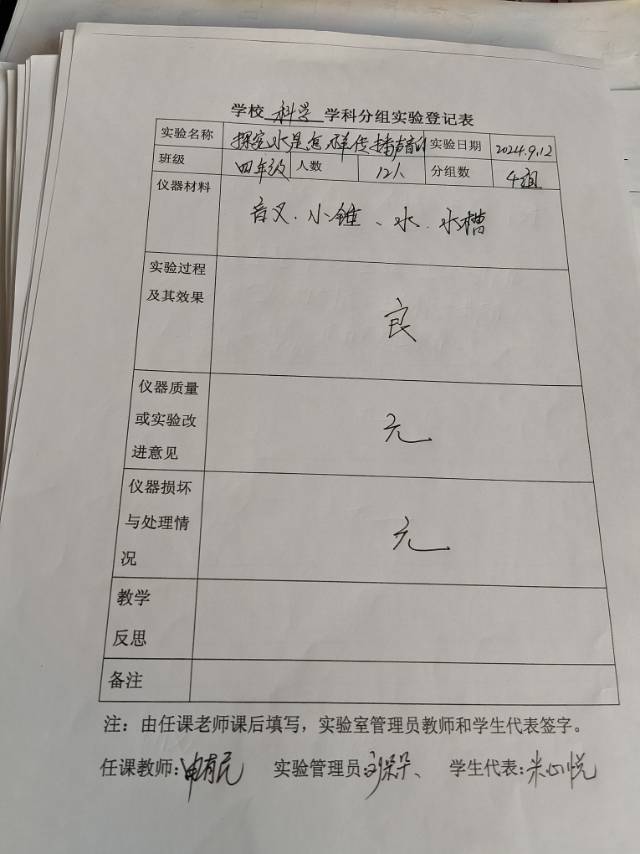 学校 科学 学科分组实验登记表
实验名称 探究水是怎样传播声音的 实验日期 2024.9.12
班级 四年级 人数 12人 分组数 4组
仪器材料 音叉、小锤、水、水槽
实验过程
及其效果 良
仪器质量
或实验改
进意见 无
仪器损坏
与处理情
况 无
教学
反思
备注
注：由任课老师课后填写，实验室管理员教师和学生代表签字。
任课教师: 实验管理员: 学生代表: 米心悦